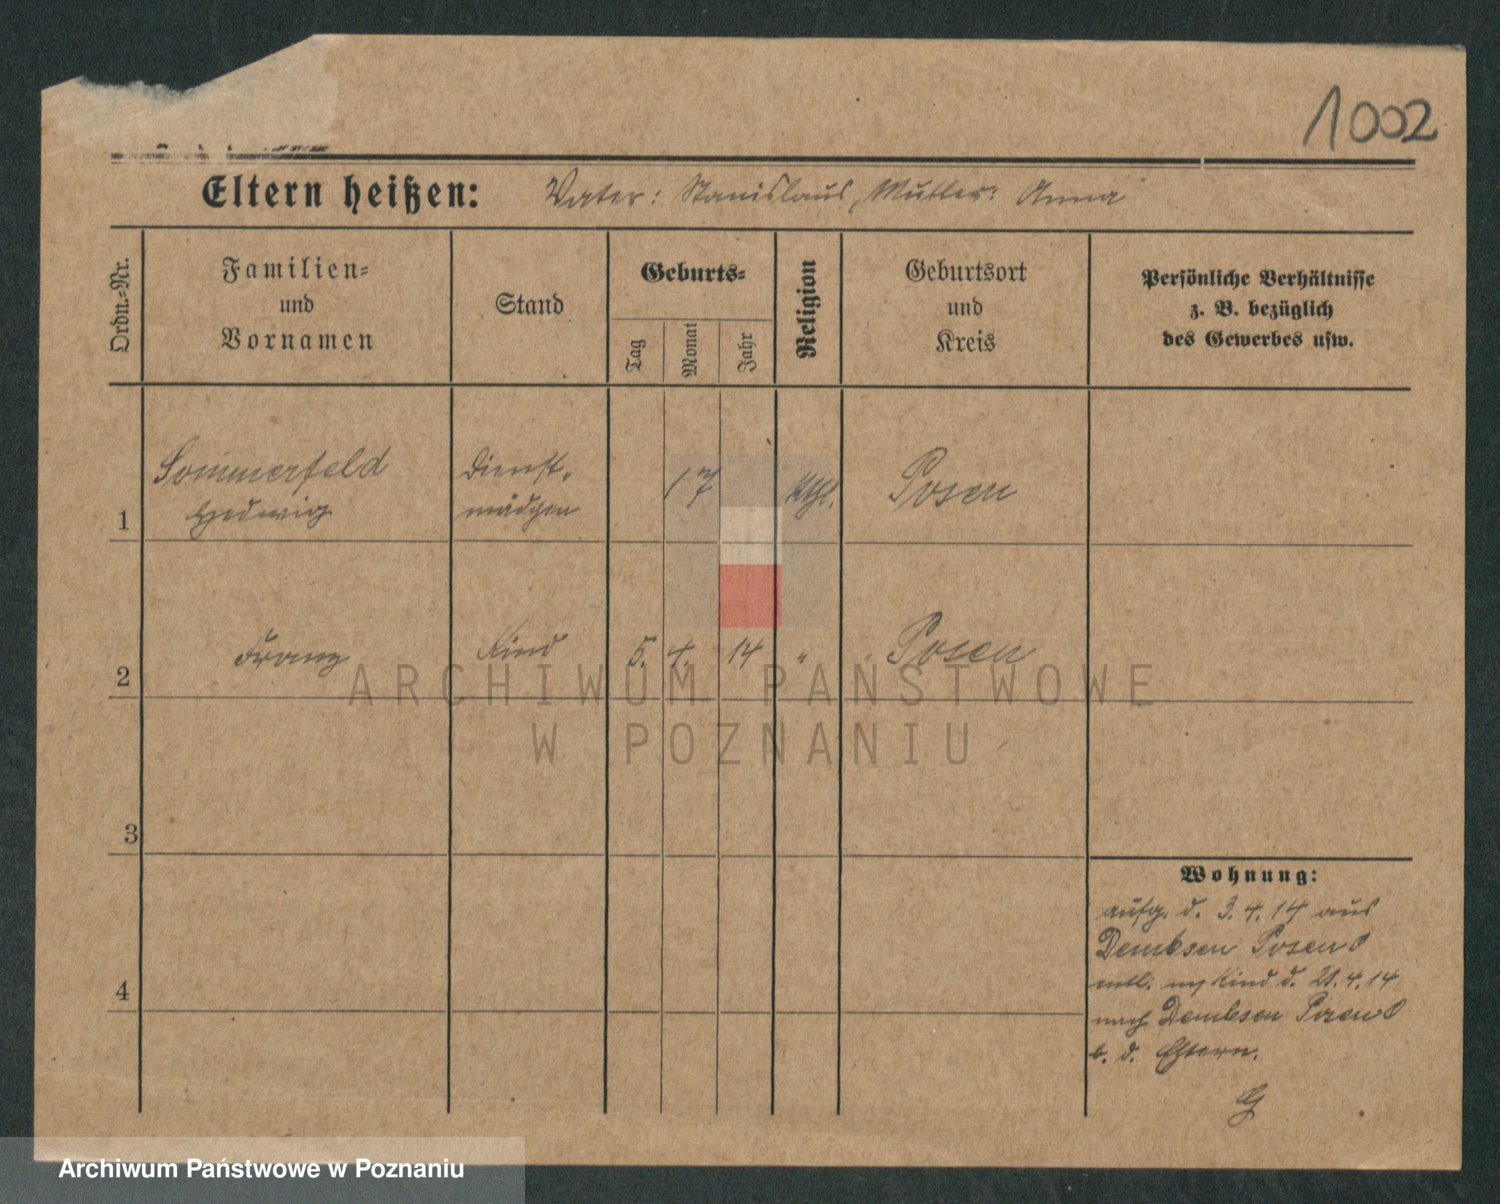 1002
Eltern heißen: Vater: Stanislaus, Mutter: Anna
Ordn.-Nr.
Familien-
und
Vornamen
Stand
Geburts-
Tag
Monat
Jahr
Religion
Geburtsort
und
Kreis
Persönliche Verhältnisse
z. B. bezüglich
des Gewerbes usw.
1
Sommerfeld
Hedwig
Dienst-
mädchen
17
Kthl.
Posen
2
Franz
Kind
5. 4. 14
"
Posen
ARCHIWUM PAŃSTWOWE
W POZNANIU
3
4
Wohnung:
aufg. d. 3. 4. 14 aus
Dembsen Posen O
entl. m. Kind d. 21. 4. 14
nach Dembsen Posen O
b. d. Eltern.
Archiwum Państwowe w Poznaniu